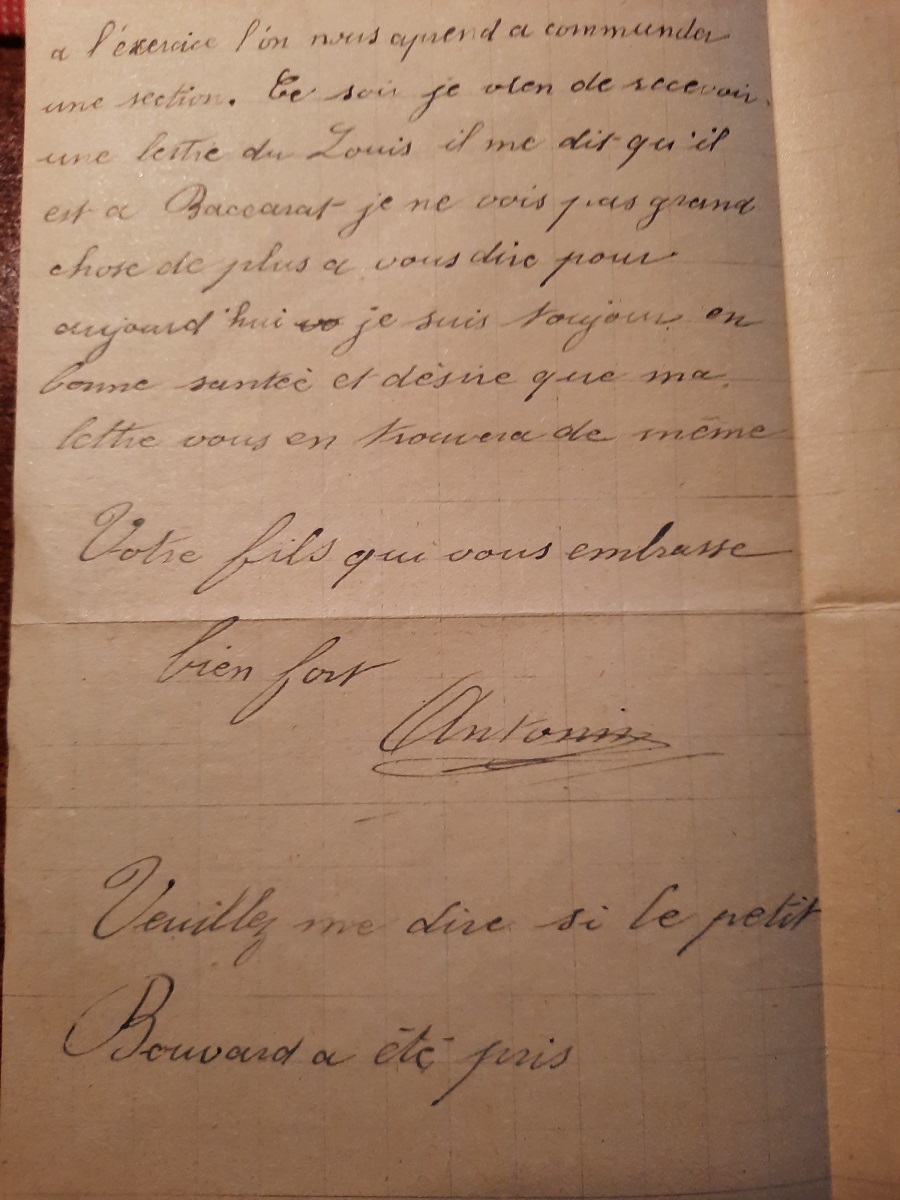 a l'éxercice l'on nous aprend a commander
une section. Ce soir je vien de recevoir
une lettre du Louis il me dit qu'il
est a Baccarat je ne vois pas grand
chose de plus a vous dire pour
aujourd'hui vo je suis toujours en
bonne santéè et désire que ma
lettre vous en trouvera de même
Votre fils qui vous embrasse
bien fort
Antonin
Veuillez me dire si le petit
Bouvard a été pris